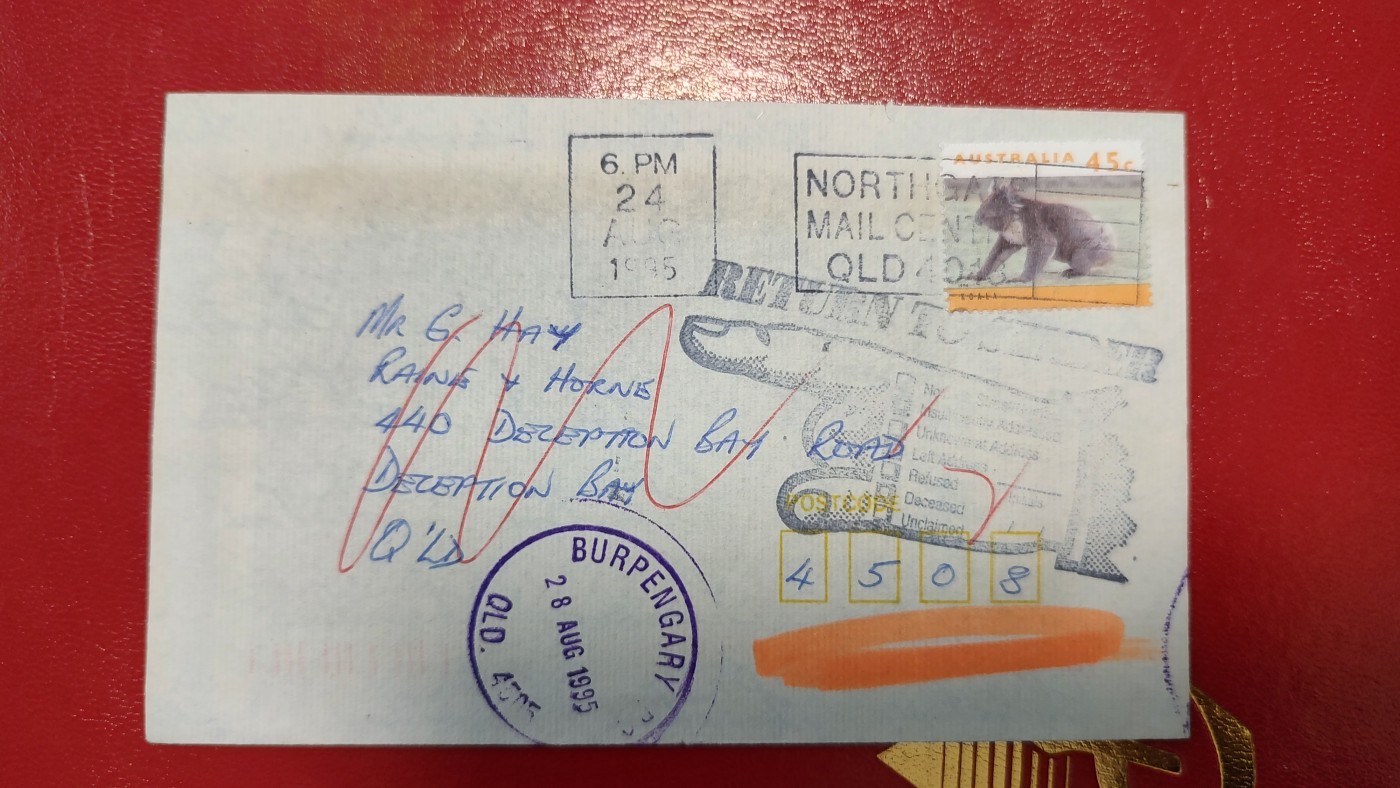 6. PM
24
AUG
1995
NORTHGATE
MAIL CENTRE
QLD 4013
AUSTRALIA 45c
KOALA
RETURN TO SENDER
MR G. HAY
RAINE & HORNE
440 DECEPTION BAY ROAD
DECEPTION BAY
Q'LD
Unknown at Address
Left Address
Refused
Deceased
Unclaimed
POSTCODE
4 5 0 8
BURPENGARY
28 AUG 1995
QLD. 4505